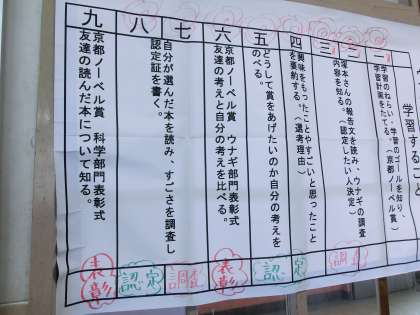 学習すること
一
学習のねらい・学習のゴールを知り、
学習計画をたてる。（京都ノーベル賞）
二
三
塚本さんの報告文を読み、ウナギの調査
内容を知る。（認定したい人決定）
調査
四
興味をもったことやすごいと思ったこと
を要約する。（選考理由）
認定
五
どうして賞をあげたいのか自分の考えを
のべる。
認定
六
京都ノーベル賞 ウナギ部門表彰式
友達の考えと自分の考えを比べる。
表彰
七
八
自分が選んだ本を読み、すごさを調査し
認定証を書く。
調査
認定
九
京都ノーベル賞 科学部門表彰式
友達の読んだ本について知る。
表彰